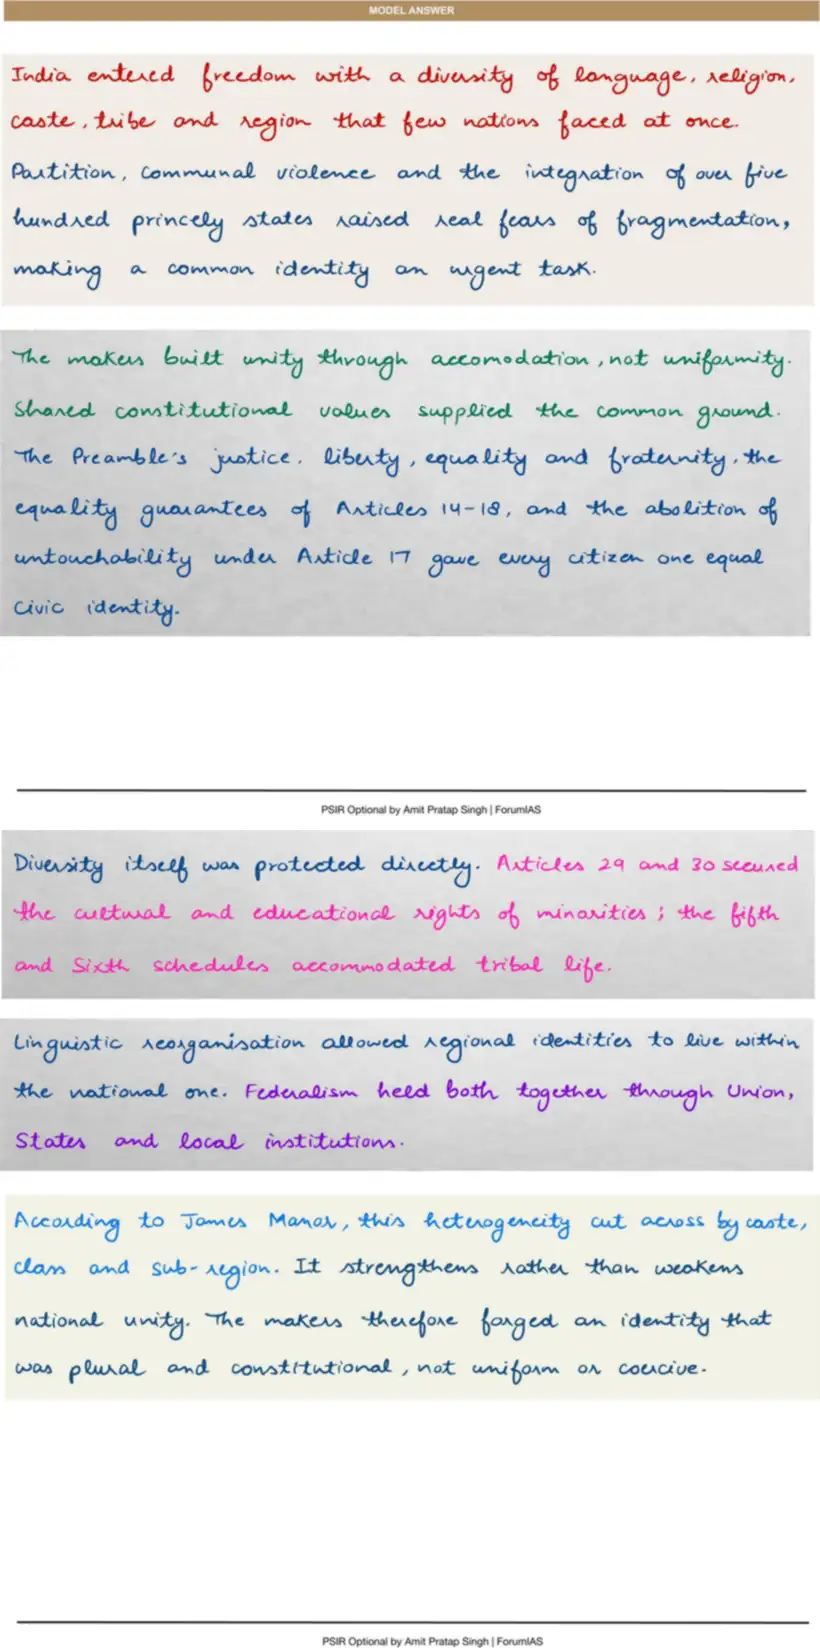 MODEL ANSWER
India entered freedom with a diversity of language, religion,
caste, tribe and region that few nations faced at once.
Partition, communal violence and the integration of over five
hundred princely states raised real fears of fragmentation,
making a common identity an urgent task.
The makers built unity through accomodation, not uniformity.
Shared constitutional values supplied the common ground.
The Preamble's justice, liberty, equality and fraternity, the
equality guarantees of Articles 14-18, and the abolition of
untouchability under Article 17 gave every citizen one equal
civic identity.
PSIR Optional by Amit Pratap Singh | ForumIAS
Diversity itself was protected directly. Articles 29 and 30 secured
the cultural and educational rights of minorities; the fifth
and Sixth schedules accommodated tribal life.
Linguistic reorganisation allowed regional identities to live within
the national one. Federalism held both together through Union,
States and local institutions.
According to James Manor, this heterogeneity cut across by caste,
class and sub-region. It strengthens rather than weakens
national unity. The makers therefore forged an identity that
was plural and constitutional, not uniform or coercive.
PSIR Optional by Amit Pratap Singh | ForumIAS